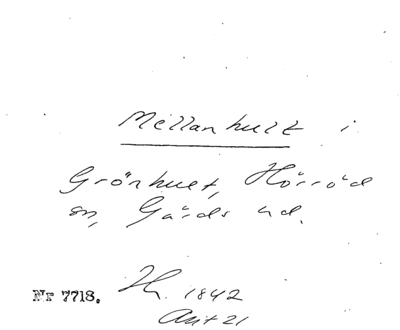 Mellanhult i
Grönhult, Hörröd
sn, Gärds hd.
Nr 7718. Th. 1842
Akt 21